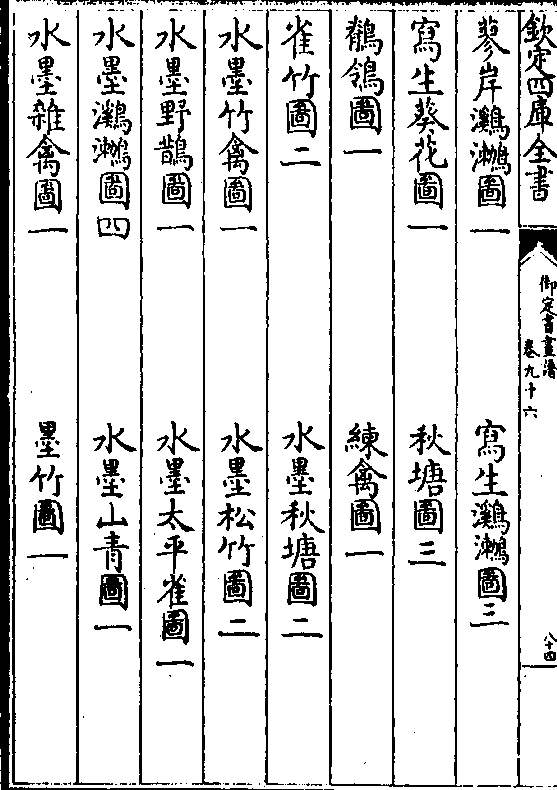 欽定四庫全書
御定書畫譜
卷九十六
八十四
蓼岸鸂鶒圖一　寫生鸂鶒圖三
寫生葵花圖一　秋塘圖三
鶺鴒圖一　練禽圖一
雀竹圖二　水墨秋塘圖二
水墨竹禽圖一　水墨松竹圖二
水墨野鵲圖一　水墨太平雀圖一
水墨鸂鶒圖四　水墨山青圖一
水墨雜禽圖一　墨竹圖一